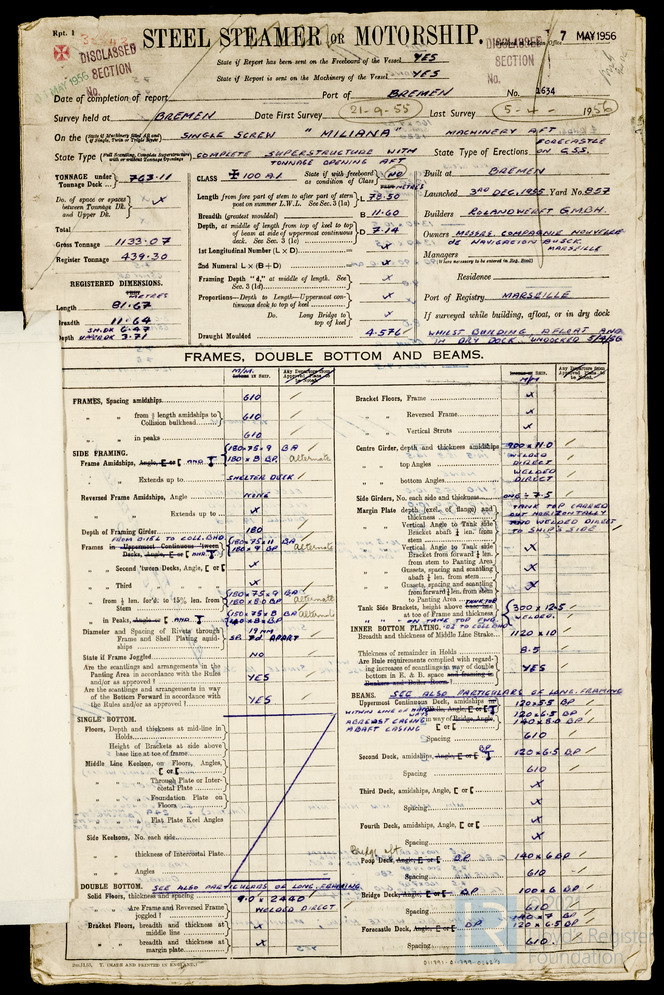 Rpt. 1
STEEL STEAMER OR MOTORSHIP.
DISCLASSED
SECTION
No.
7 MAY 1956
State if Report has been sent on the Freeboard of the Vessel YES
State if Report is sent on the Machinery of the Vessel YES
Date of completion of report
Port of BREMEN No. 1634
Survey held at BREMEN Date First Survey 21-9-55 Last Survey 5-4- 1956
On the SINGLE SCREW "MILIANA" MACHINERY AFT
State Type COMPLETE SUPERSTRUCTURE WITH TONNAGE OPENING AFT
State Type of Erections FORECASTLE ON C.S.S.
TONNAGE under Tonnage Deck 763.11
Do. of space or spaces between Tonnage Dk. and Upper Dk. x
Total
Gross Tonnage 1133.07
Register Tonnage 439.30
REGISTERED DIMENSIONS.
METRES
Length 81.67
Breadth 11.64
SH.DK 6.47
Depth UPPR DK 3.71
CLASS 100 A.1 State if with freeboard as condition of Class NO
METRES
Length from fore part of stem to after part of stern post on summer L.W.L. See Sec. 3 (1a) L 78.50
Breadth (greatest moulded) B 11.60
Depth, at middle of length from top of keel to top of beam at side of uppermost continuous deck. See Sec. 3 (1c) D 7.14
1st Longitudinal Number (L × D) x
2nd Numeral L × (B + D) x
Framing Depth "d," at middle of length. See Sec. 3 (1d) x
Proportions—Depth to Length—Uppermost continuous deck to top of keel x
Do. Long Bridge to top of keel x
Draught Moulded 4.576
Built at BREMEN
Launched 3RD DEC. 1955 Yard No. 857
Builders ROLANDWERFT GMBH.
Owners MESSRS. COMPAGNIE NOUVELLE DE NAVIGATION BUSCK, MARSEILLE
Managers
(Where necessary to be entered in Reg. Book)
Residence
Port of Registry MARSEILLE
If surveyed while building, afloat, or in dry dock
WHILST BUILDING, AFLOAT AND IN DRY DOCK. UNDOCKED 5/4/56
FRAMES, DOUBLE BOTTOM AND BEAMS.
M/M. in SHIP. Any Departure from Approved Plans to be Noted.
FRAMES, Spacing amidships 610
" " from ⅗ length amidships to Collision bulkhead 610
" " in peaks 610
SIDE FRAMING.
Frame Amidships, Angle, [ or [ AND T 180·75×9 BA
180 × 8 BP. alternate
" " Extends up to SHELTER DECK
Reversed Frame Amidships, Angle NONE
" " Extends up to x
Depth of Framing Girder 180
FROM 0.15L TO COLL. BHD
Frames in Uppermost Continuous 'tween Decks, Angle, [ or [ AND T 180×75×11 BA
180 × 9 BP alternate
" Second 'tween Decks, Angle, [ or [ x
" Third " " " x
" from ⅗ len. for'd. to 15% len. from Stem 180×75×9 BA
180×8.0 BP alternate
" in Peaks, Angle [ or [ AND T 150×75×8 BA
140×8×BP alternate
Diameter and Spacing of Rivets through Frame and Shell Plating amidships 19 MM
SP. 7d APART
State if Frame Joggled NO
Are the scantlings and arrangements in the Panting Area in accordance with the Rules and/or as approved? YES
Are the scantlings and arrangements in way of the Bottom Forward in accordance with the Rules and/or as approved? YES
SINGLE BOTTOM.
Floors, Depth and thickness at mid-line in Holds
Height of Brackets at side above base line at toe of frame
Middle Line Keelson, on Floors, Angles, [ or [
" " Through Plate or Intercostal Plate
" " Foundation Plate on Floors
" " Flat Plate Keel Angles
Side Keelsons, No. each side
" " thickness of Intercostal Plate
" " Angles
DOUBLE BOTTOM. SEE ALSO PARTICULARS OF LONG. FRAMING
Solid Floors, thickness and spacing 9.0 × 2440
" " Are Frame and Reversed Frame joggled? WELDED DIRECT
Bracket Floors, breadth and thickness at middle line x
" " breadth and thickness at margin plate x
T. (MADE AND PRINTED IN ENGLAND.)
Bracket Floors, Frame x
" " Reversed Frame x
" " Vertical Struts x
Centre Girder, depth and thickness amidships 900 × 11.0
" " top Angles WELDED DIRECT
" " bottom Angles WELDED DIRECT
Side Girders, No. each side and thickness ONE - 7.5
Margin Plate depth (excl. of flange) and thickness TANK TOP CARRED OUT HORIZONTALLY AND WELDED DIRECT TO SHIP'S SIDE
" " Vertical Angle to Tank side Bracket abaft ¼ len. from stem
" " Vertical Angle to Tank side Bracket from forward ¼ len. from stem to Panting Area x
" " Gussets, spacing and scantling abaft ¼ len. from stem x
" " Gussets, spacing and scantling from forward ¼ len. from stem to Panting Area x
Tank Side Brackets, height above TANK TOP 300 × 12.5
WELDED.
INNER BOTTOM PLATING.
Breadth and thickness of Middle Line Strake 1120 × 10
Thickness of remainder in Holds 8.5
Are Rule requirements complied with regarding increases of scantlings in way of double bottom in E. & B. space YES
BEAMS. SEE ALSO PARTICULARS OF LONG. FRAMING
Uppermost Continuous Deck, amidships 120×5.5 BP
WITHIN LINE OF
ABREAST CASING 120×6.5 BP
ABAFT CASING 140×8.0 BP
Spacing 610
Second Deck, amidships, Angle, [ or [ BP 120×6.5 BP
Spacing 610
Third Deck, amidships, Angle, [ or [ x
Spacing x
Fourth Deck, amidships, Angle, [ or [ x
Spacing x
Poop Deck, Angle, [ or [ BP 140×6 BP
Spacing 610
Bridge Deck, Angle, [ or [ BP 100×6 BP
Spacing 610
Forecastle Deck, Angle, [ or [ BP 140×7 BP
120×6.5 BP
Spacing 610
© 2021
Lloyd's Register
Foundation